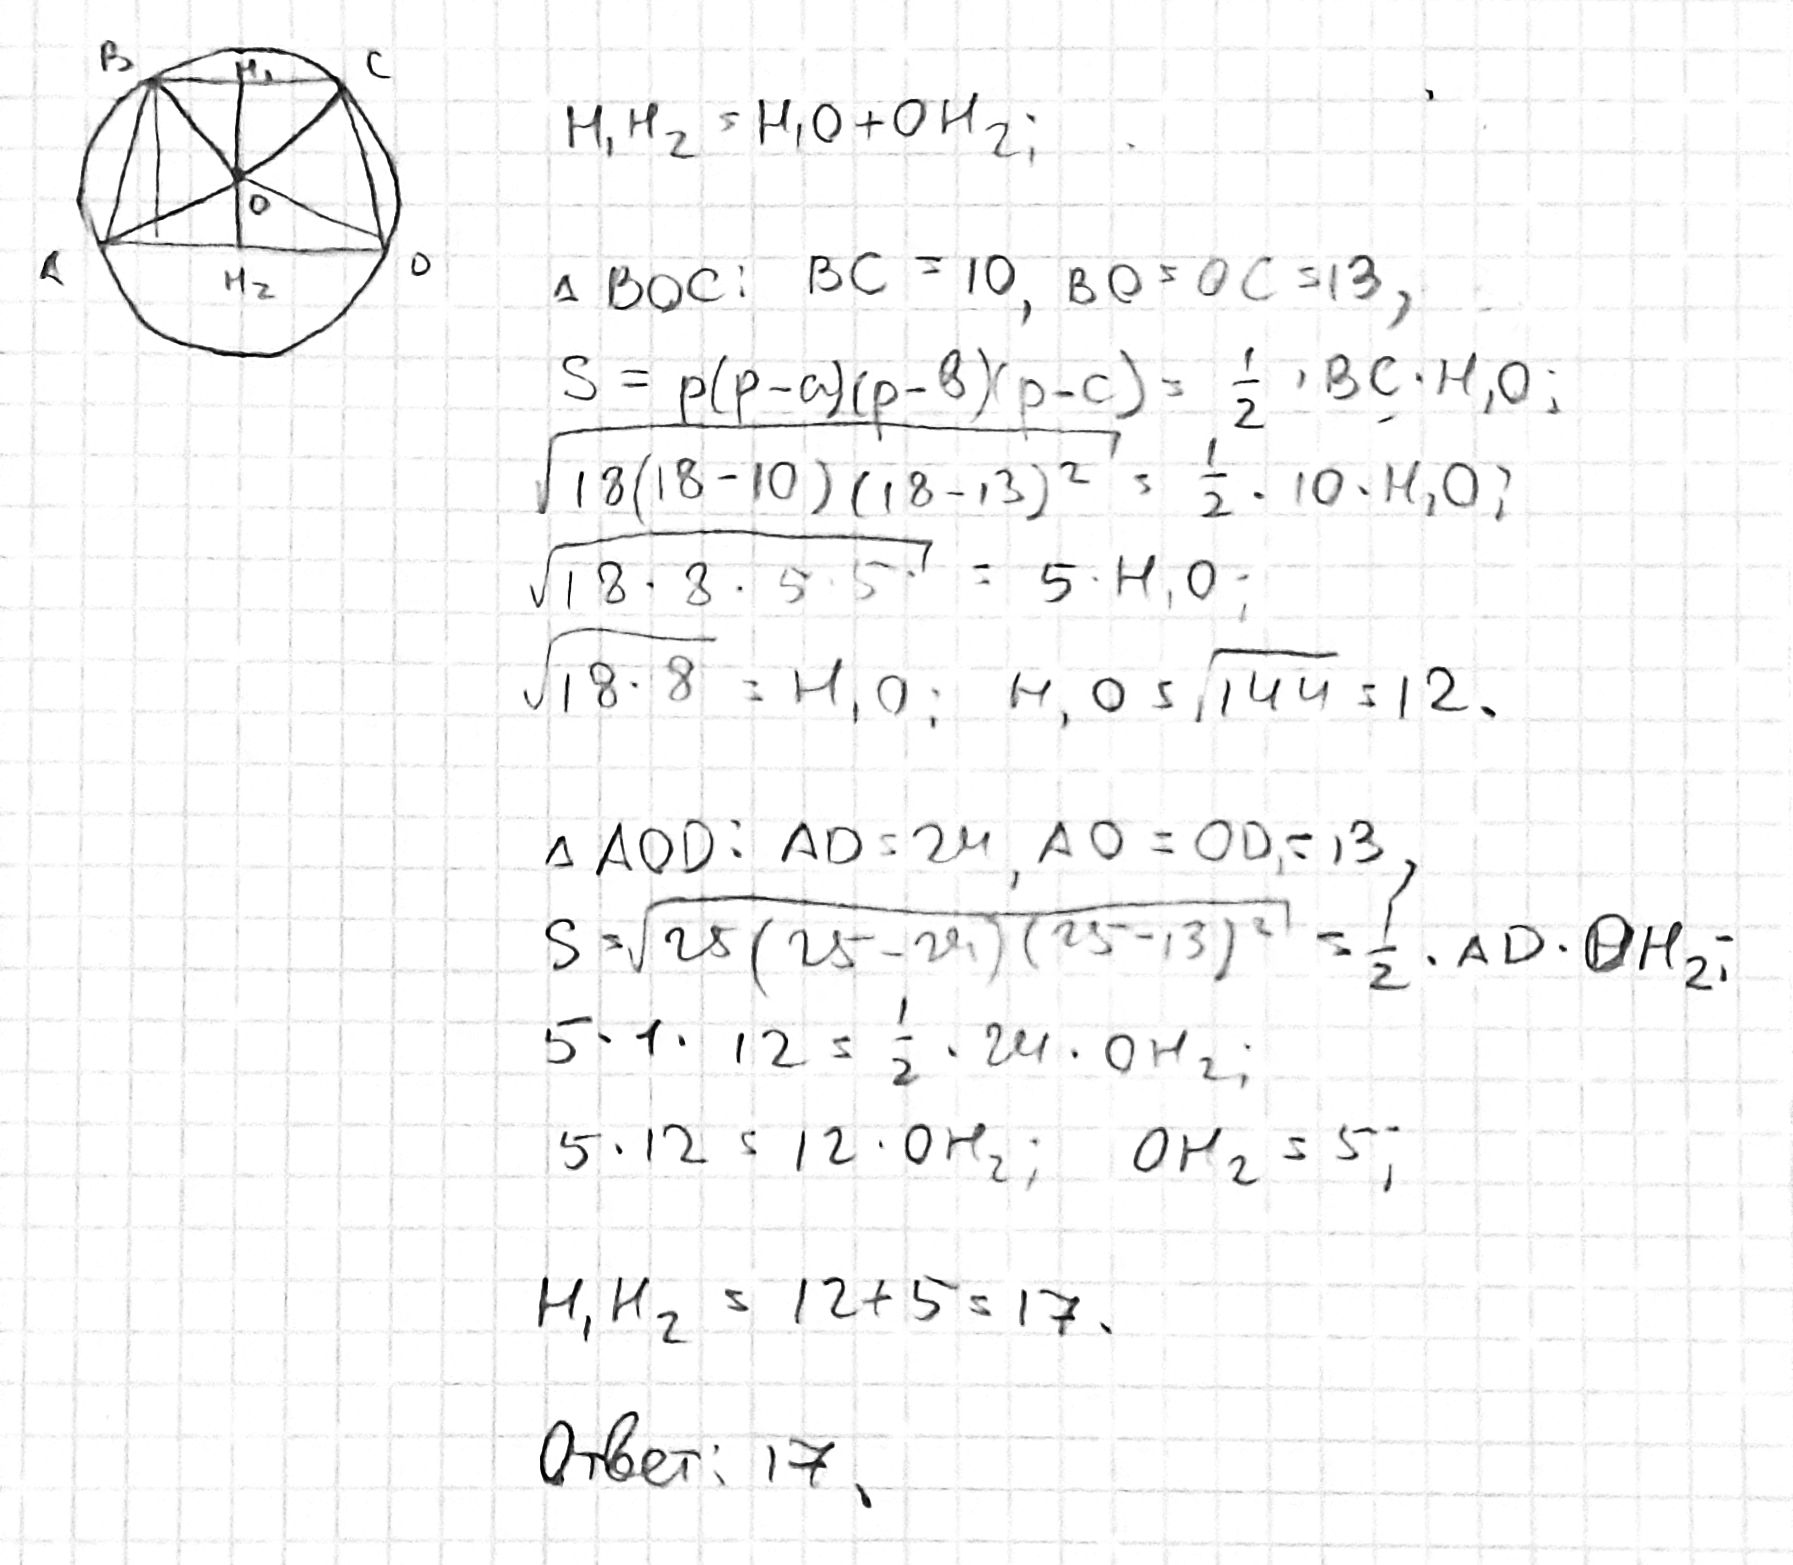 B H₁ C
O
A H₂ D
H₁H₂ = H₁O + OH₂;
△ BOC: BC = 10, BO = OC = 13,
S = p(p-a)(p-в)(p-c) = 1/2 · BC · H₁O;
√(18(18-10)(18-13)²) = 1/2 · 10 · H₁O;
√(18·8·5·5) = 5·H₁O;
√(18·8) = H₁O; H₁O = √144 = 12.
△ AOD: AD = 24, AO = OD = 13,
S = √(25(25-24)(25-13)²) = 1/2 · AD · OH₂;
5·1·12 = 1/2 · 24 · OH₂;
5·12 = 12·OH₂; OH₂ = 5;
H₁H₂ = 12+5 = 17.
Ответ: 17.